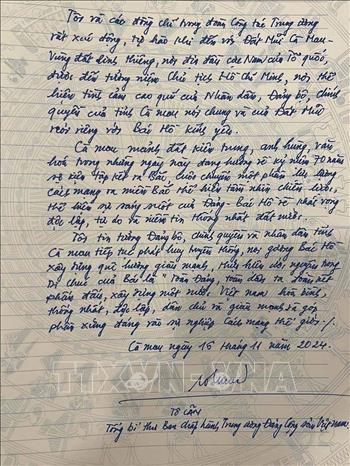 Tôi và các đồng chí trong đoàn Công tác Trung ương
rất xúc động, tự hào khi đến với Đất Mũi Cà Mau -
Vùng đất linh thiêng, nơi địa đầu cực Nam của Tổ quốc,
được đến tưởng niệm Chủ tịch Hồ Chí Minh, nơi thể
hiện tình cảm cao quý của Nhân dân, Đảng bộ, chính
quyền của tỉnh Cà Mau nói chung và của Đất Mũi
nói riêng với Bác Hồ kính yêu.
Cà Mau mảnh đất kiên trung, anh hùng, văn
hoá trong những ngày này đang hướng về kỷ niệm 70 năm
sự kiện tập kết ra Bắc, cuộc chuyển một phần lực lượng
cách mạng ra miền Bắc thể hiện tầm nhìn chiến lược,
thể hiện sự sáng suốt của Đảng - Bác Hồ về khát vọng
độc lập, tự do và niềm tin thống nhất đất nước.
Tôi tin tưởng Đảng bộ, chính quyền và nhân dân tỉnh
Cà Mau tiếp tục phát huy truyền thống, noi gương Bác Hồ
xây dựng quê hương giàu mạnh, thực hiện ước nguyện trong
Di chúc của Bác là "Toàn Đảng, toàn dân ta đoàn kết
phấn đấu, xây dựng một nước Việt Nam hoà bình,
thống nhất, độc lập, dân chủ và giàu mạnh và góp
phần xứng đáng vào sự nghiệp cách mạng thế giới./.
Cà Mau ngày 16 tháng 11 năm 2024.
TÔ LÂM
Tổng bí thư Ban chấp hành Trung ương Đảng Cộng sản Việt Nam